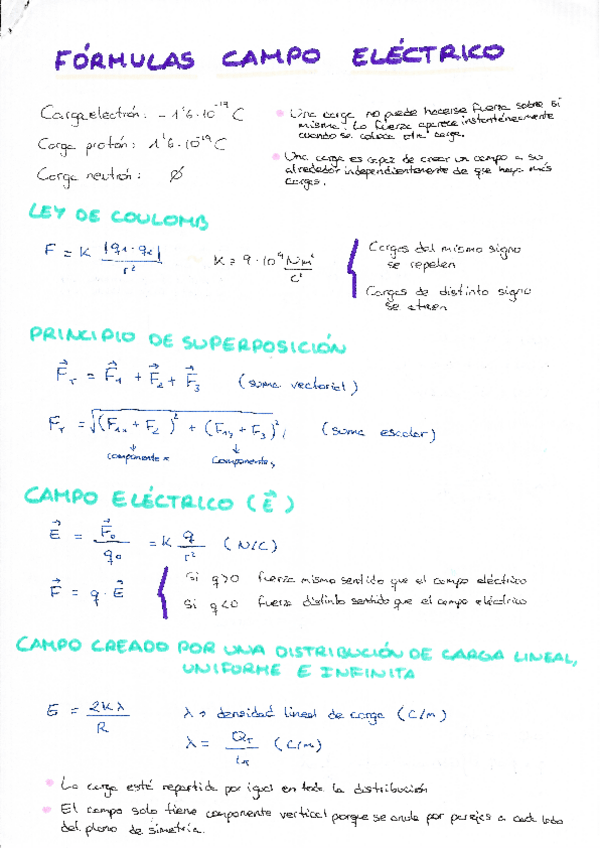 FÓRMULAS CAMPO ELÉCTRICO
Carga electrón: - 1'6·10⁻¹⁹ C
Carga protón: 1'6·10⁻¹⁹ C
Carga neutrón: ∅
• Una carga no puede hacerse fuerza sobre si
misma. La fuerza aparece instantáneamente
cuando se coloca otra carga.
• Una carga es capaz de crear un campo a su
alrededor independientemente de que haya más
cargas.
LEY DE COULOMB
F = K |q₁·q₂| / r²
K = 9·10⁹ N·m² / C²
Cargas del mismo signo
se repelen
Cargas de distinto signo
se atraen
PRINCIPIO DE SUPERPOSICIÓN
F⃗ᴛ = F⃗₁ + F⃗₂ + F⃗₃ (suma vectorial)
Fᴛ = √(F₁ₓ + F₂)² + (F₁ᵧ + F₃)² (suma escalar)
↓ ↓
componente x componente y
CAMPO ELÉCTRICO (E⃗)
E⃗ = F⃗₀ / q₀ = K q / r² (N/C)
F⃗ = q · E⃗
Si q>0 fuerza mismo sentido que el campo eléctrico
Si q<0 fuerza distinto sentido que el campo eléctrico
CAMPO CREADO POR UNA DISTRIBUCIÓN DE CARGA LINEAL,
UNIFORME E INFINITA
E = 2Kλ / R
λ → densidad lineal de carga (C/m)
λ = Qᴛ / Lᴛ (C/m)
• La carga está repartida por igual en toda la distribución
• El campo solo tiene componente vertical porque se anula por parejas a cada lado
del plano de simetría.